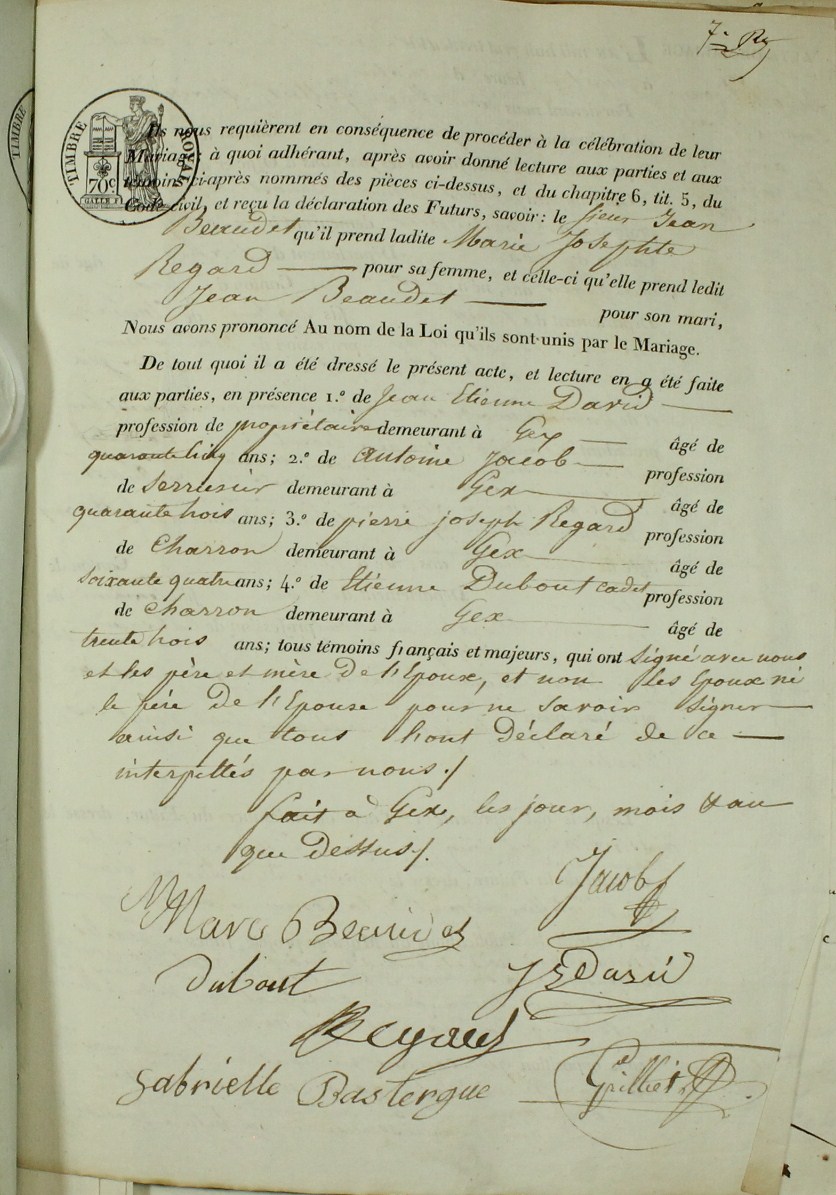 7.e
TIMBRE
TIMBRE ROYAL
70c
Ils nous requièrent en conséquence de procéder à la célébration de leur
Mariage; à quoi adhérant, après avoir donné lecture aux parties et aux
témoins ci-après nommés des pièces ci-dessus, et du chapitre 6, tit. 5, du
Code civil, et reçu la déclaration des Futurs, savoir: le Sieur Jean
Beaudet qu'il prend ladite Marie Josephte
Regard — pour sa femme, et celle-ci qu'elle prend ledit
Jean Beaudet — pour son mari,
Nous avons prononcé Au nom de la Loi qu'ils sont unis par le Mariage.
De tout quoi il a été dressé le présent acte, et lecture en a été faite
aux parties, en présence 1.º de Jean Etienne David —
profession de propriétaire demeurant à Gex — âgé de
quarante cinq ans; 2.º de antoine Jacob — profession
de Serrurier demeurant à Gex — âgé de
quarante trois ans; 3.º de pierre joseph Regard profession
de Charron demeurant à Gex — âgé de
soixante quatre ans; 4.º de Etienne Dubout cadet profession
de Charron demeurant à Gex — âgé de
trente trois ans; tous témoins français et majeurs, qui ont signé avec nous
et les père et mère de l'Epoux, et non les Epoux ni
le père de l'Epouse pour ne savoir signer —
ainsi que tous l'ont déclaré de ce —
interpellés par nous./
fait à Gex, les jour, mois & an
que dessus/.
Jacob
Marc Beaudet
Dubout
JE David
Regard
Gabrielle Bastergue
Grilliet